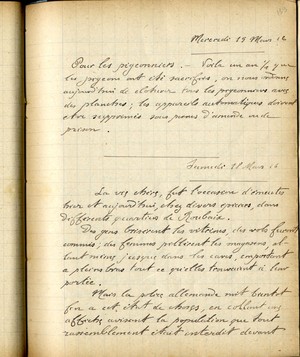 Mercredi 15 Mars 16
Pour les pigeonniers. — Voilà un an ½ que
les pigeons ont été sacrifiés, on nous
aujourd'hui de clôturer tous les pigeonniers avec
des planches; les appareils automatiques doivent
être supprimés sous peines d'amende ou de
prison.
Samedi 18 Mars 16
La vie chère, fut l'occasion d'émeutes
hier et aujourd'hui, chez divers épiciers, dans
différents quartiers de Roubaix.
Des gens brisèrent les vitrines, des vols furent
commis; des femmes pillèrent les magasins, al-
lant même, jusque dans les caves, emportant
à pleins bras tout ce qu'elles trouvaient à leur
portée.
Mais la police allemande mit bientôt
fin à cet état de choses, en collant des
affiches avisant la population que tout
rassemblement était interdit devant